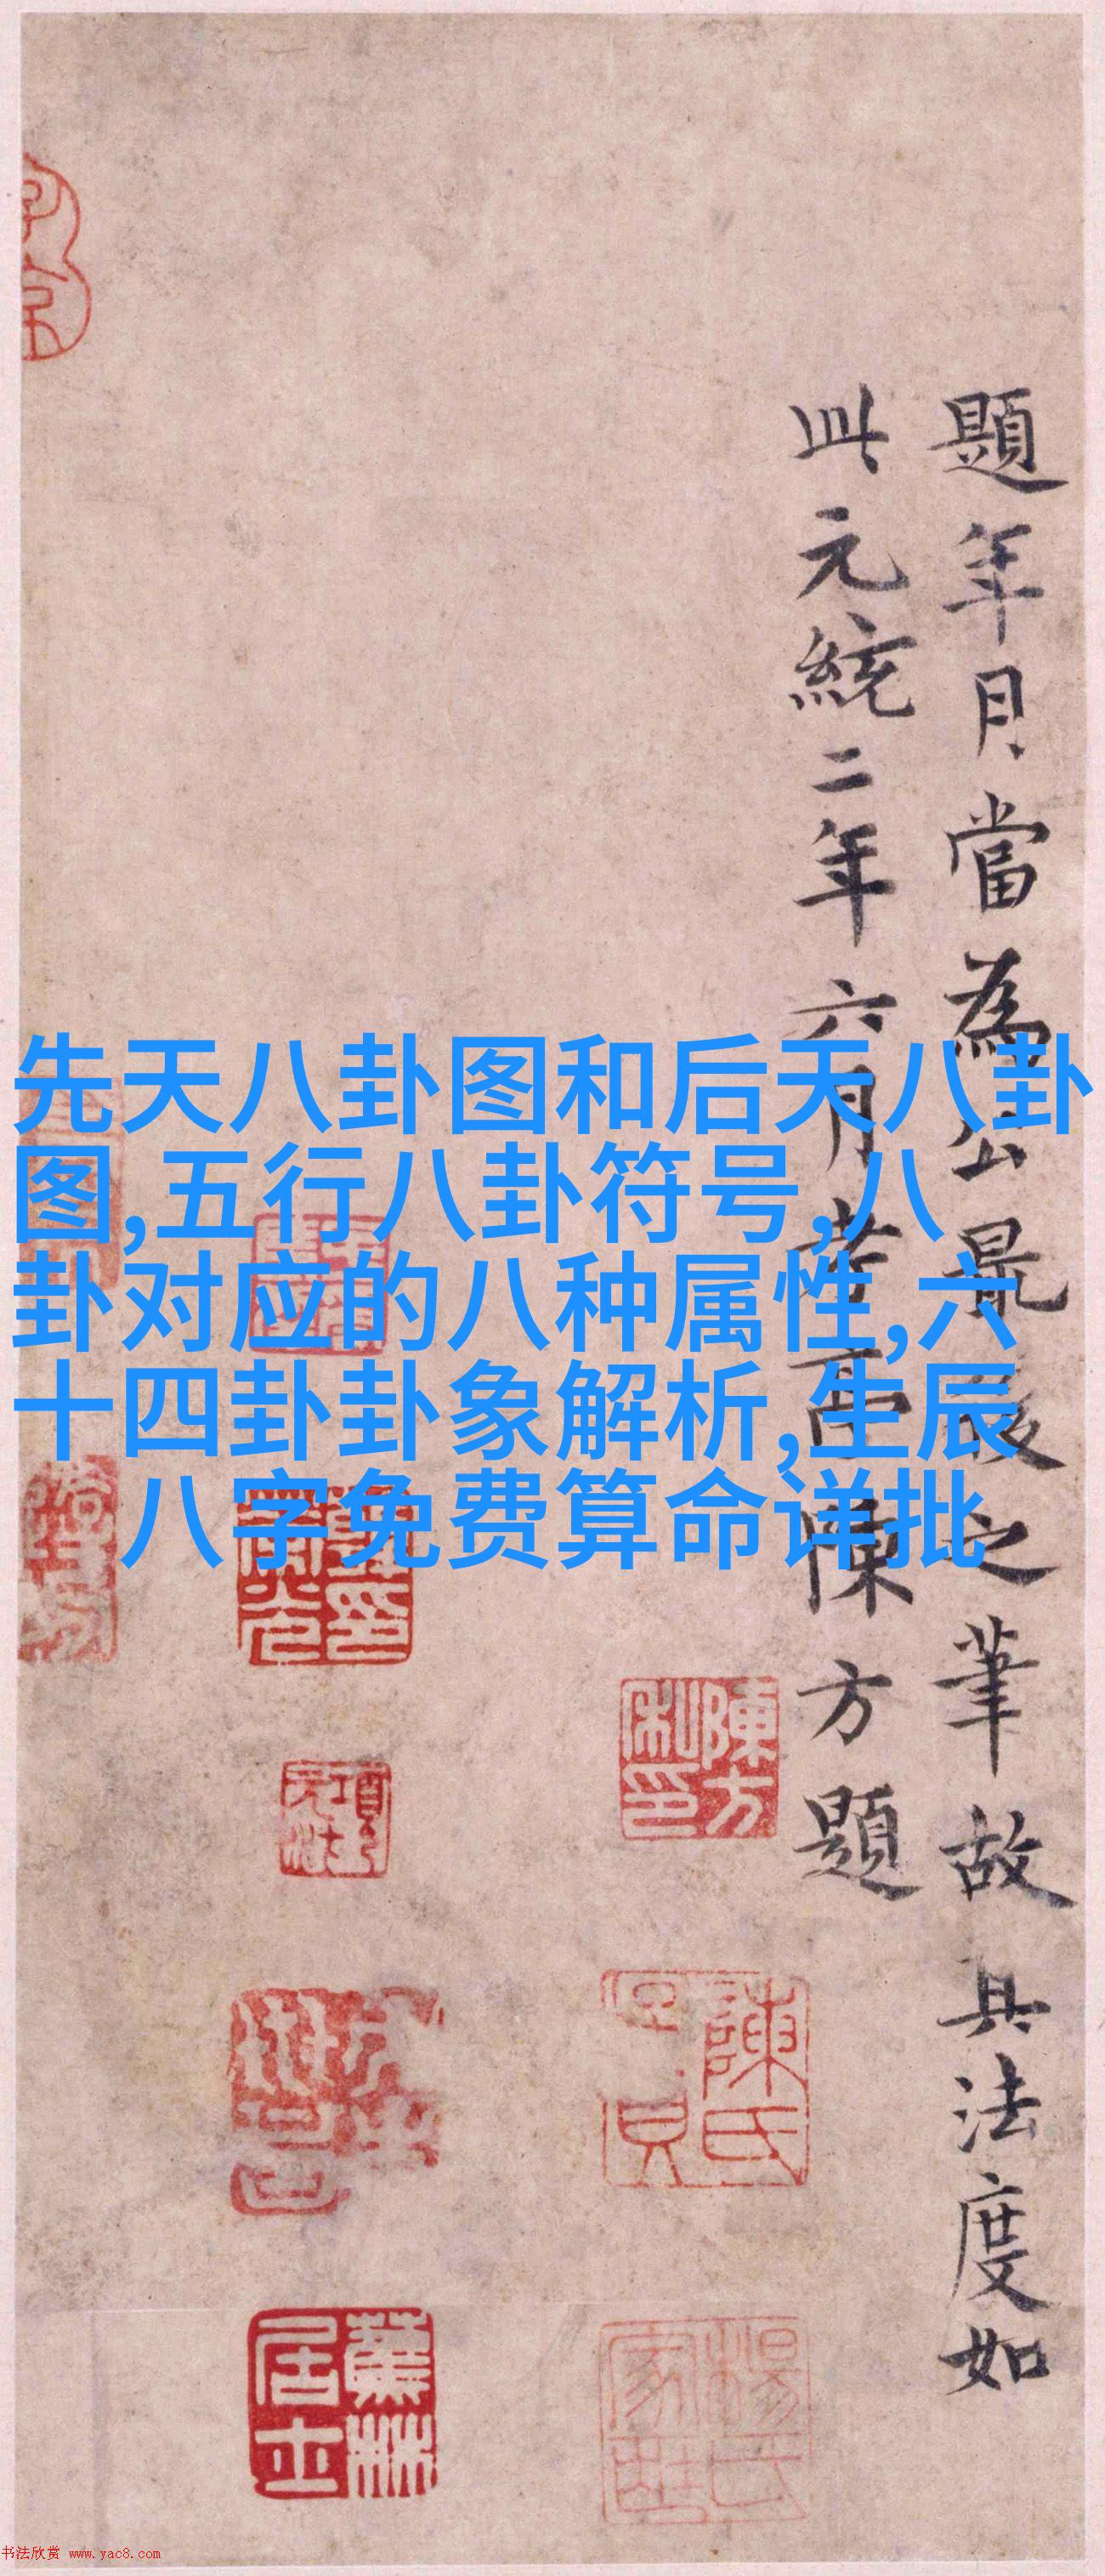 先天八卦图和后天八卦
图,五行八卦符号,八
卦对应的八种属性,六
十四卦卦象解析,生辰
八字免费算命详批
題年月當為公最後之筆故其法度如
此元統二年六月考亭陳方題
陳方私印
陳氏
蕉林居士
书法欣赏 www.yac8.com